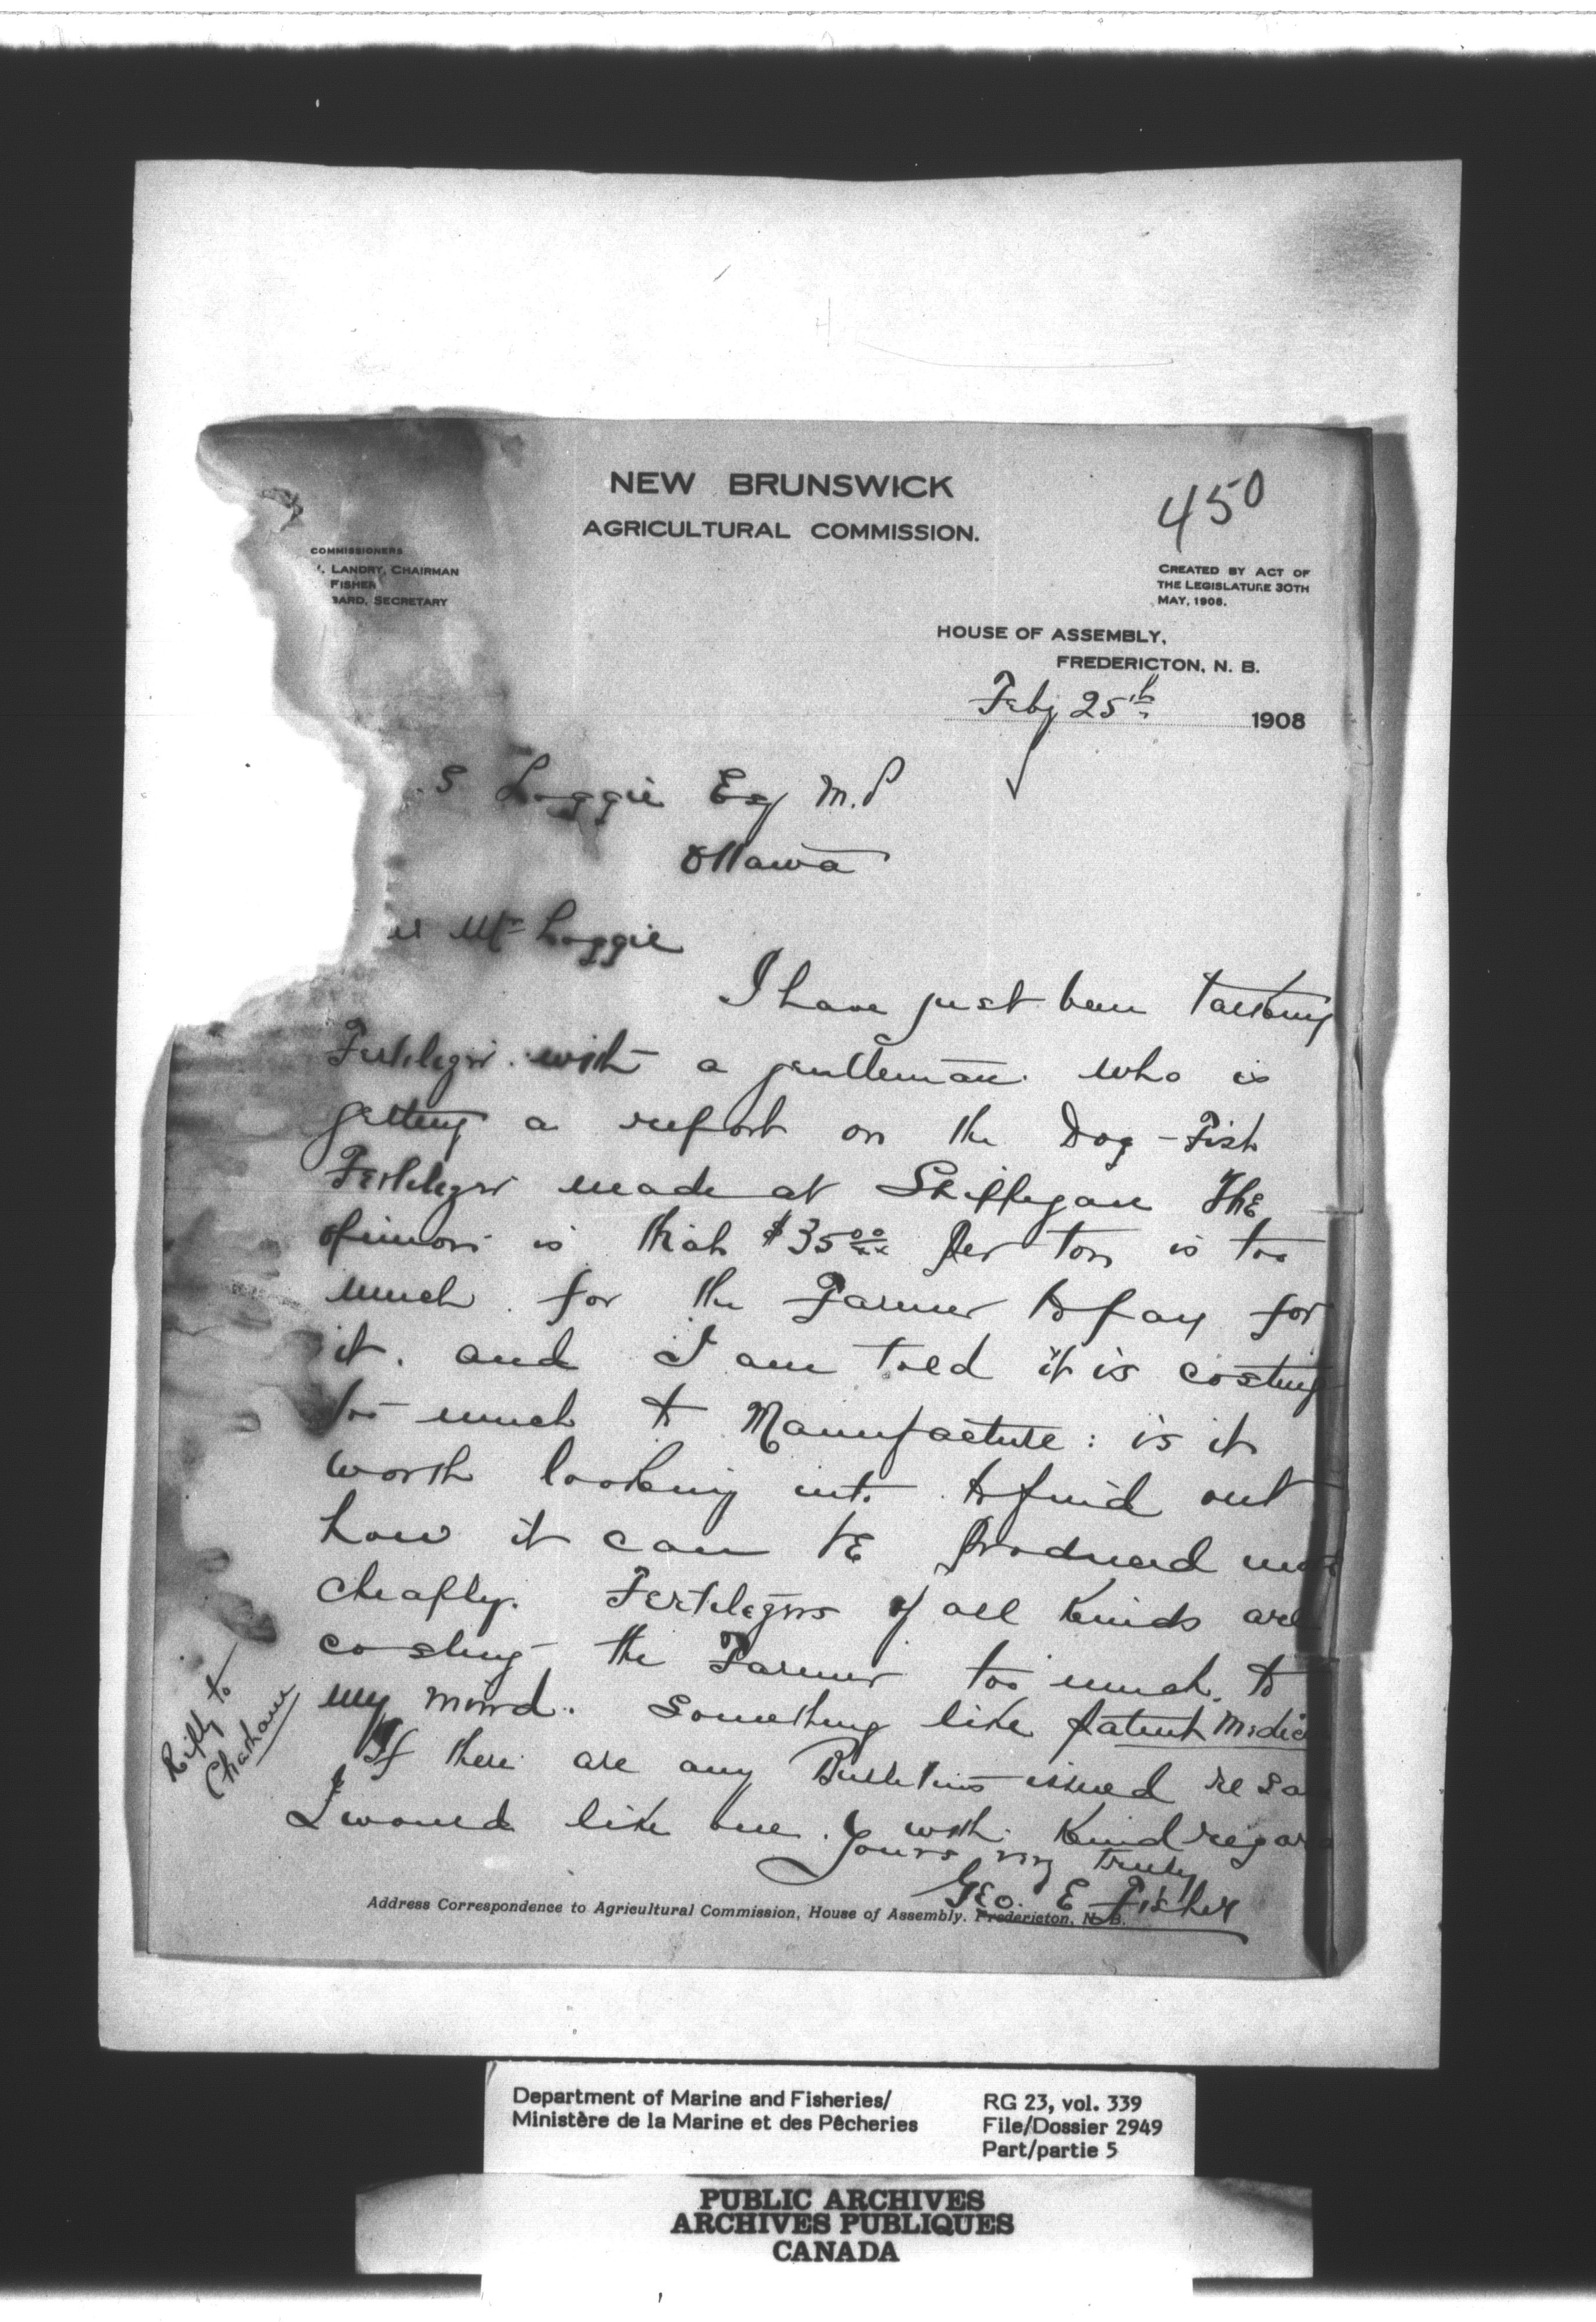 NEW BRUNSWICK
AGRICULTURAL COMMISSION.
450
COMMISSIONERS
. LANDRY, CHAIRMAN
FISHER
BARD, SECRETARY
CREATED BY ACT OF
THE LEGISLATURE 30TH
MAY, 1908.
HOUSE OF ASSEMBLY,
FREDERICTON, N. B.
Feby 25th 1908
S Loggie Esq M.P
Ottawa
Mr Loggie
I have just been talking
Fertilezer with a gentleman who is
getting a report on the Dog-Fish
Fertilezer made at Shippegan The
opinion is that $35 00/xx per ton is too
much for the Farmer to pay for
it. and I am told it is costing
too much to Manufacture: is it
worth looking into to find out
how it can be produced
cheaply. Fertelezers of all kinds are
costing the Farmer too much to
my mind. Something like patent Medic
If there are any Bulletins issued re sa
I would like one. with kind regar
Yours very truly
Geo. E Fisher
Reply to
Chatham
Address Correspondence to Agricultural Commission, House of Assembly, Fredericton, N. B.
Department of Marine and Fisheries/
Ministère de la Marine et des Pêcheries
RG 23, vol. 339
File/Dossier 2949
Part/partie 5
PUBLIC ARCHIVES
ARCHIVES PUBLIQUES
CANADA